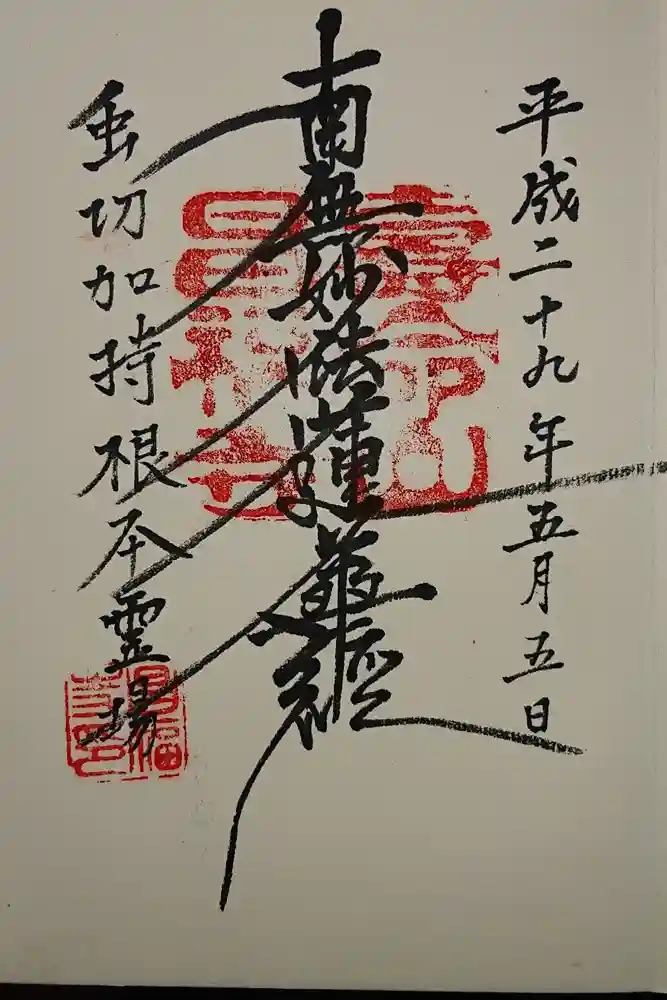 平成二十九年五月五日
南無妙法蓮華経
虫切加持根本霊場